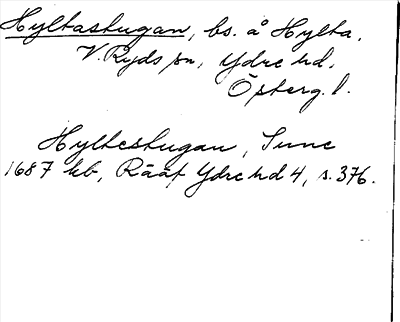 Hyltastugan, bs. å Hylta,
V. Ryds sn, Ydre hd,
Österg. l.
Hyltestugan, Sune
1687 kb, Rääf Ydre hd 4, s. 376.